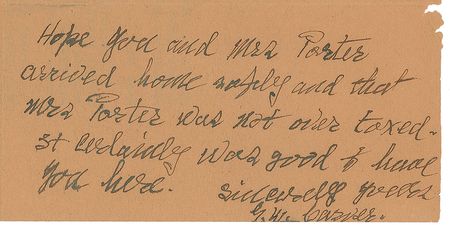 Hope you and Mrs Porter
arrived home safely and that
Mrs Porter was not over taxed.
It certainly was good to have
you here.
Sincerely yours
G. W.